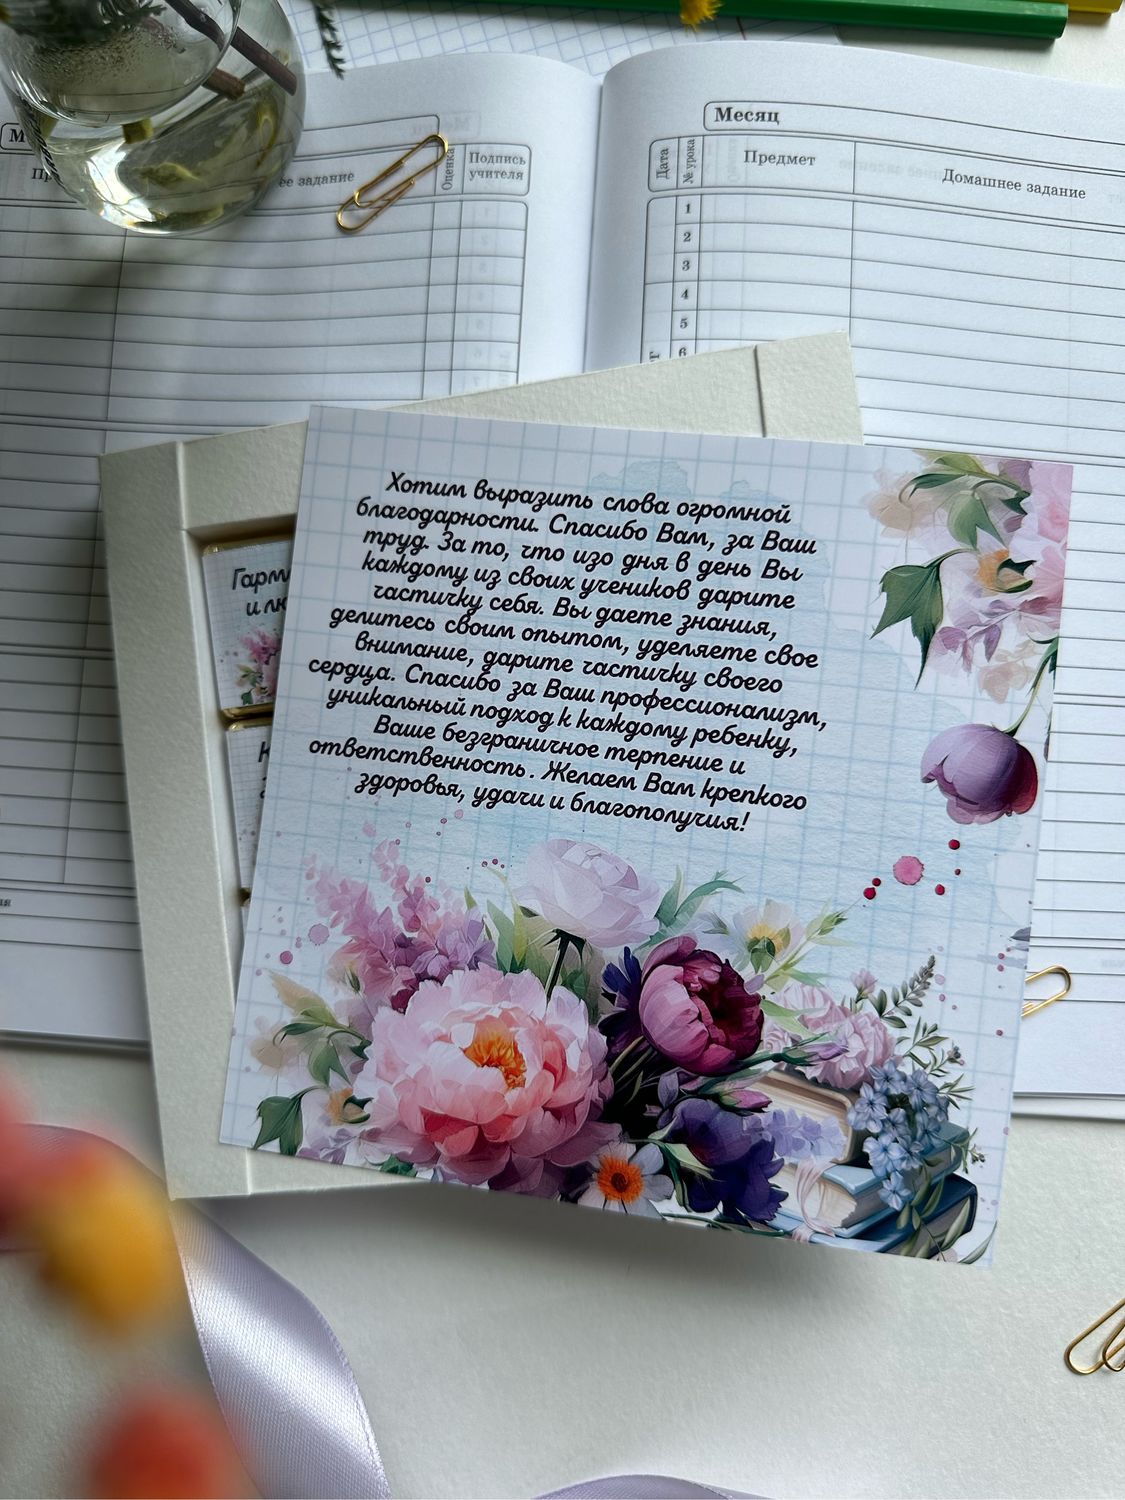 Месяц
Оценка
Подпись
учителя
ее задание
Дата
№ урока
Предмет
Домашнее задание
1
2
3
4
5
6
Хотим выразить слова огромной
благодарности. Спасибо Вам, за Ваш
труд. За то, что изо дня в день Вы
каждому из своих учеников дарите
частичку себя. Вы даете знания,
делитесь своим опытом, уделяете свое
внимание, дарите частичку своего
сердца. Спасибо за Ваш профессионализм,
уникальный подход к каждому ребенку,
Ваше безграничное терпение и
ответственность. Желаем Вам крепкого
здоровья, удачи и благополучия!
Гарм
и лю